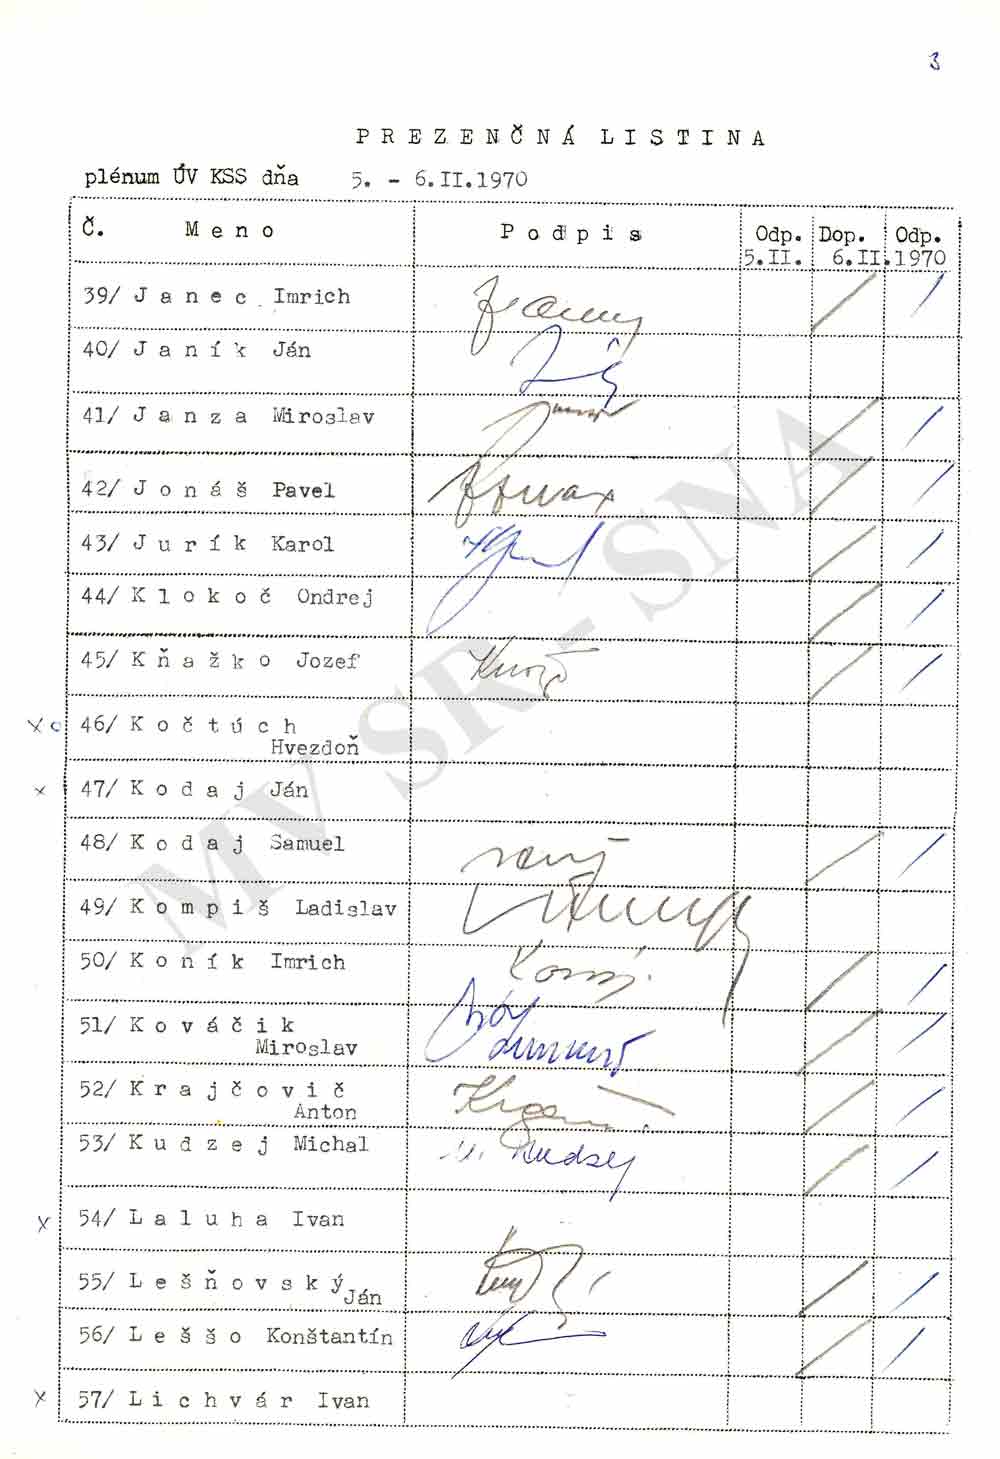 3
PREZENČNÁ LISTINA
plénum ÚV KSS dňa 5. - 6.II.1970
Č. Meno Podpis Odp. Dop. Odp.
5.II. 6.II.1970
39/ Janec Imrich
40/ Janík Ján
41/ Janza Miroslav
42/ Jonáš Pavel
43/ Jurík Karol
44/ Klokoč Ondrej
45/ Kňažko Jozef
x o 46/ Kočtúch
Hvezdoň
x 47/ Kodaj Ján
48/ Kodaj Samuel
49/ Kompiš Ladislav
50/ Koník Imrich
51/ Kováčik
Miroslav
52/ Krajčovič
Anton
53/ Kudzej Michal M. Kudzej
x 54/ Laluha Ivan
55/ Lešňovský
Ján
56/ Leššo Konštantín
x 57/ Lichvár Ivan
MV SR - SNA